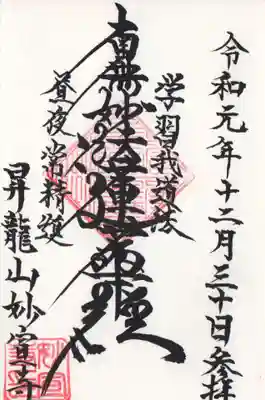 令和元年十二月三十日参拝
学習我道法
南無妙法蓮華経
昼夜常精進
昇龍山妙宣寺